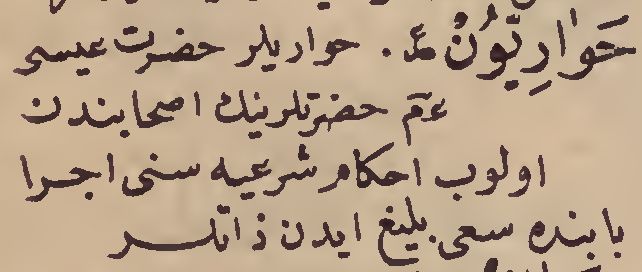 حَوَارِيُّونْ ع. حواریلر حضرت عیسی
عم حضرتلرینك اصحابندن
اولوب احکام شرعیه سنی اجرا
بابنده سعی بلیغ ایدن ذاتلر